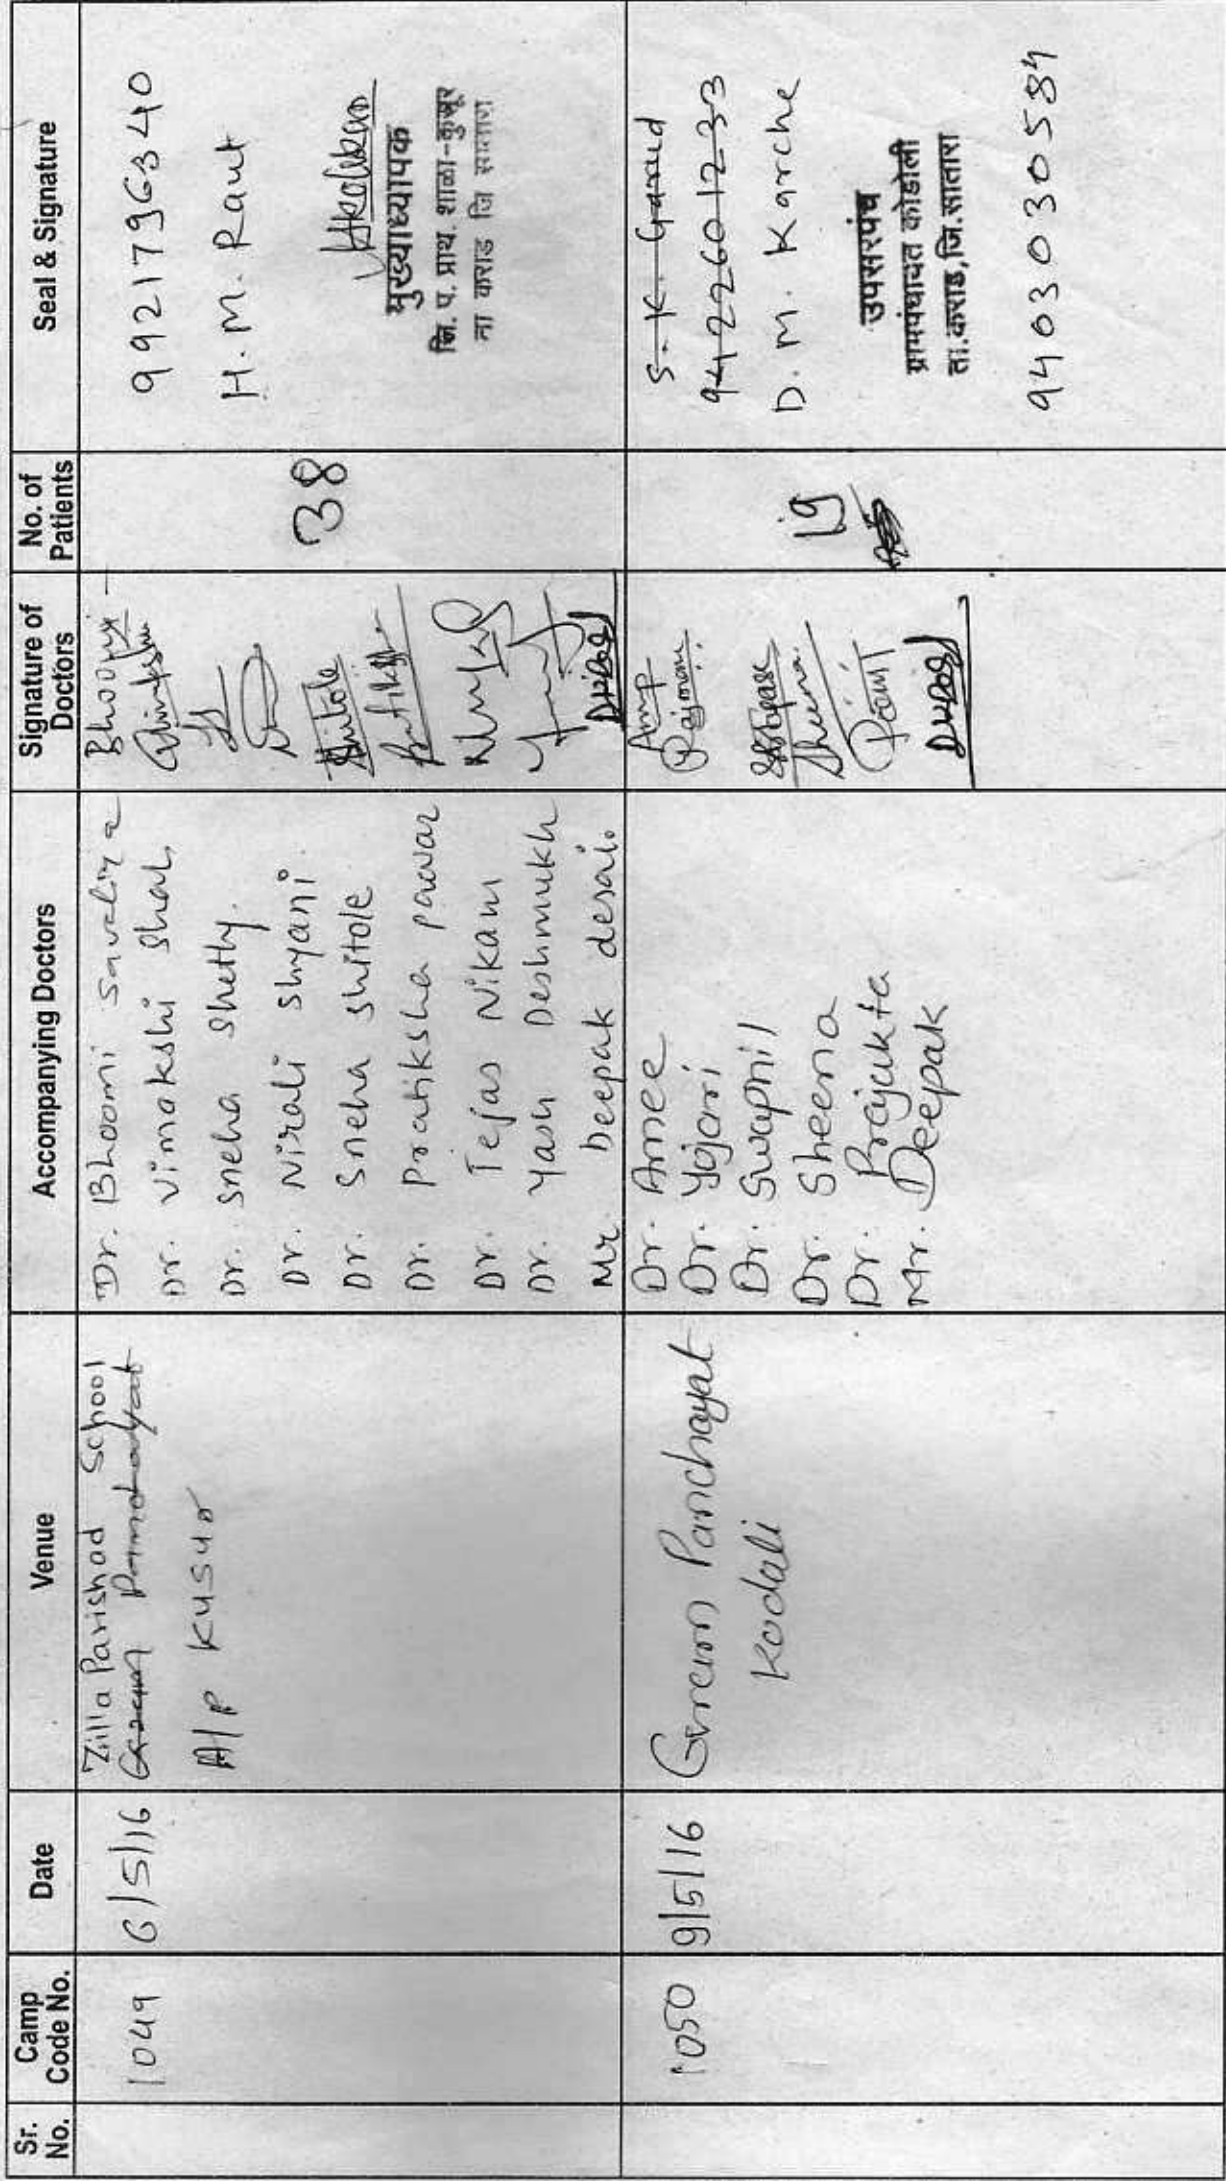 Sr. No.
Camp Code No.
Date
Venue
Accompanying Doctors
Signature of Doctors
No. of Patients
Seal & Signature
1049
6/5/16
Zilla Parishad School
Gram Panchayat
A/P Kusur
Dr. Bhoomi Savaliya
Dr. Vimakshi Shah
Dr. Sneha Shetty.
Dr. Nirali Shyani
Dr. Sneha Shitole
Dr. Pratiksha Pawar
Dr. Tejas Nikam
Dr. Yash Deshmukh
Mr. Deepak desai.
Bhoomi
Shitole
38
9921796340
H. M. Raut
मुख्याध्यापक
जि. प. प्राथ. शाळा-कुसूर
ता कराड जि सातारा
1050
9/5/16
Gram Panchayat
Kodali
Dr. Amee
Dr. Yojani
Dr. Swapnil
Dr. Sheena
Dr. Prajukta
Mr. Deepak
19
S. K. Garud
9422601233
D. M. Karche
उपसरपंच
ग्रामपंचायत कोडोली
ता.कराड,जि.सातारा
9403030584